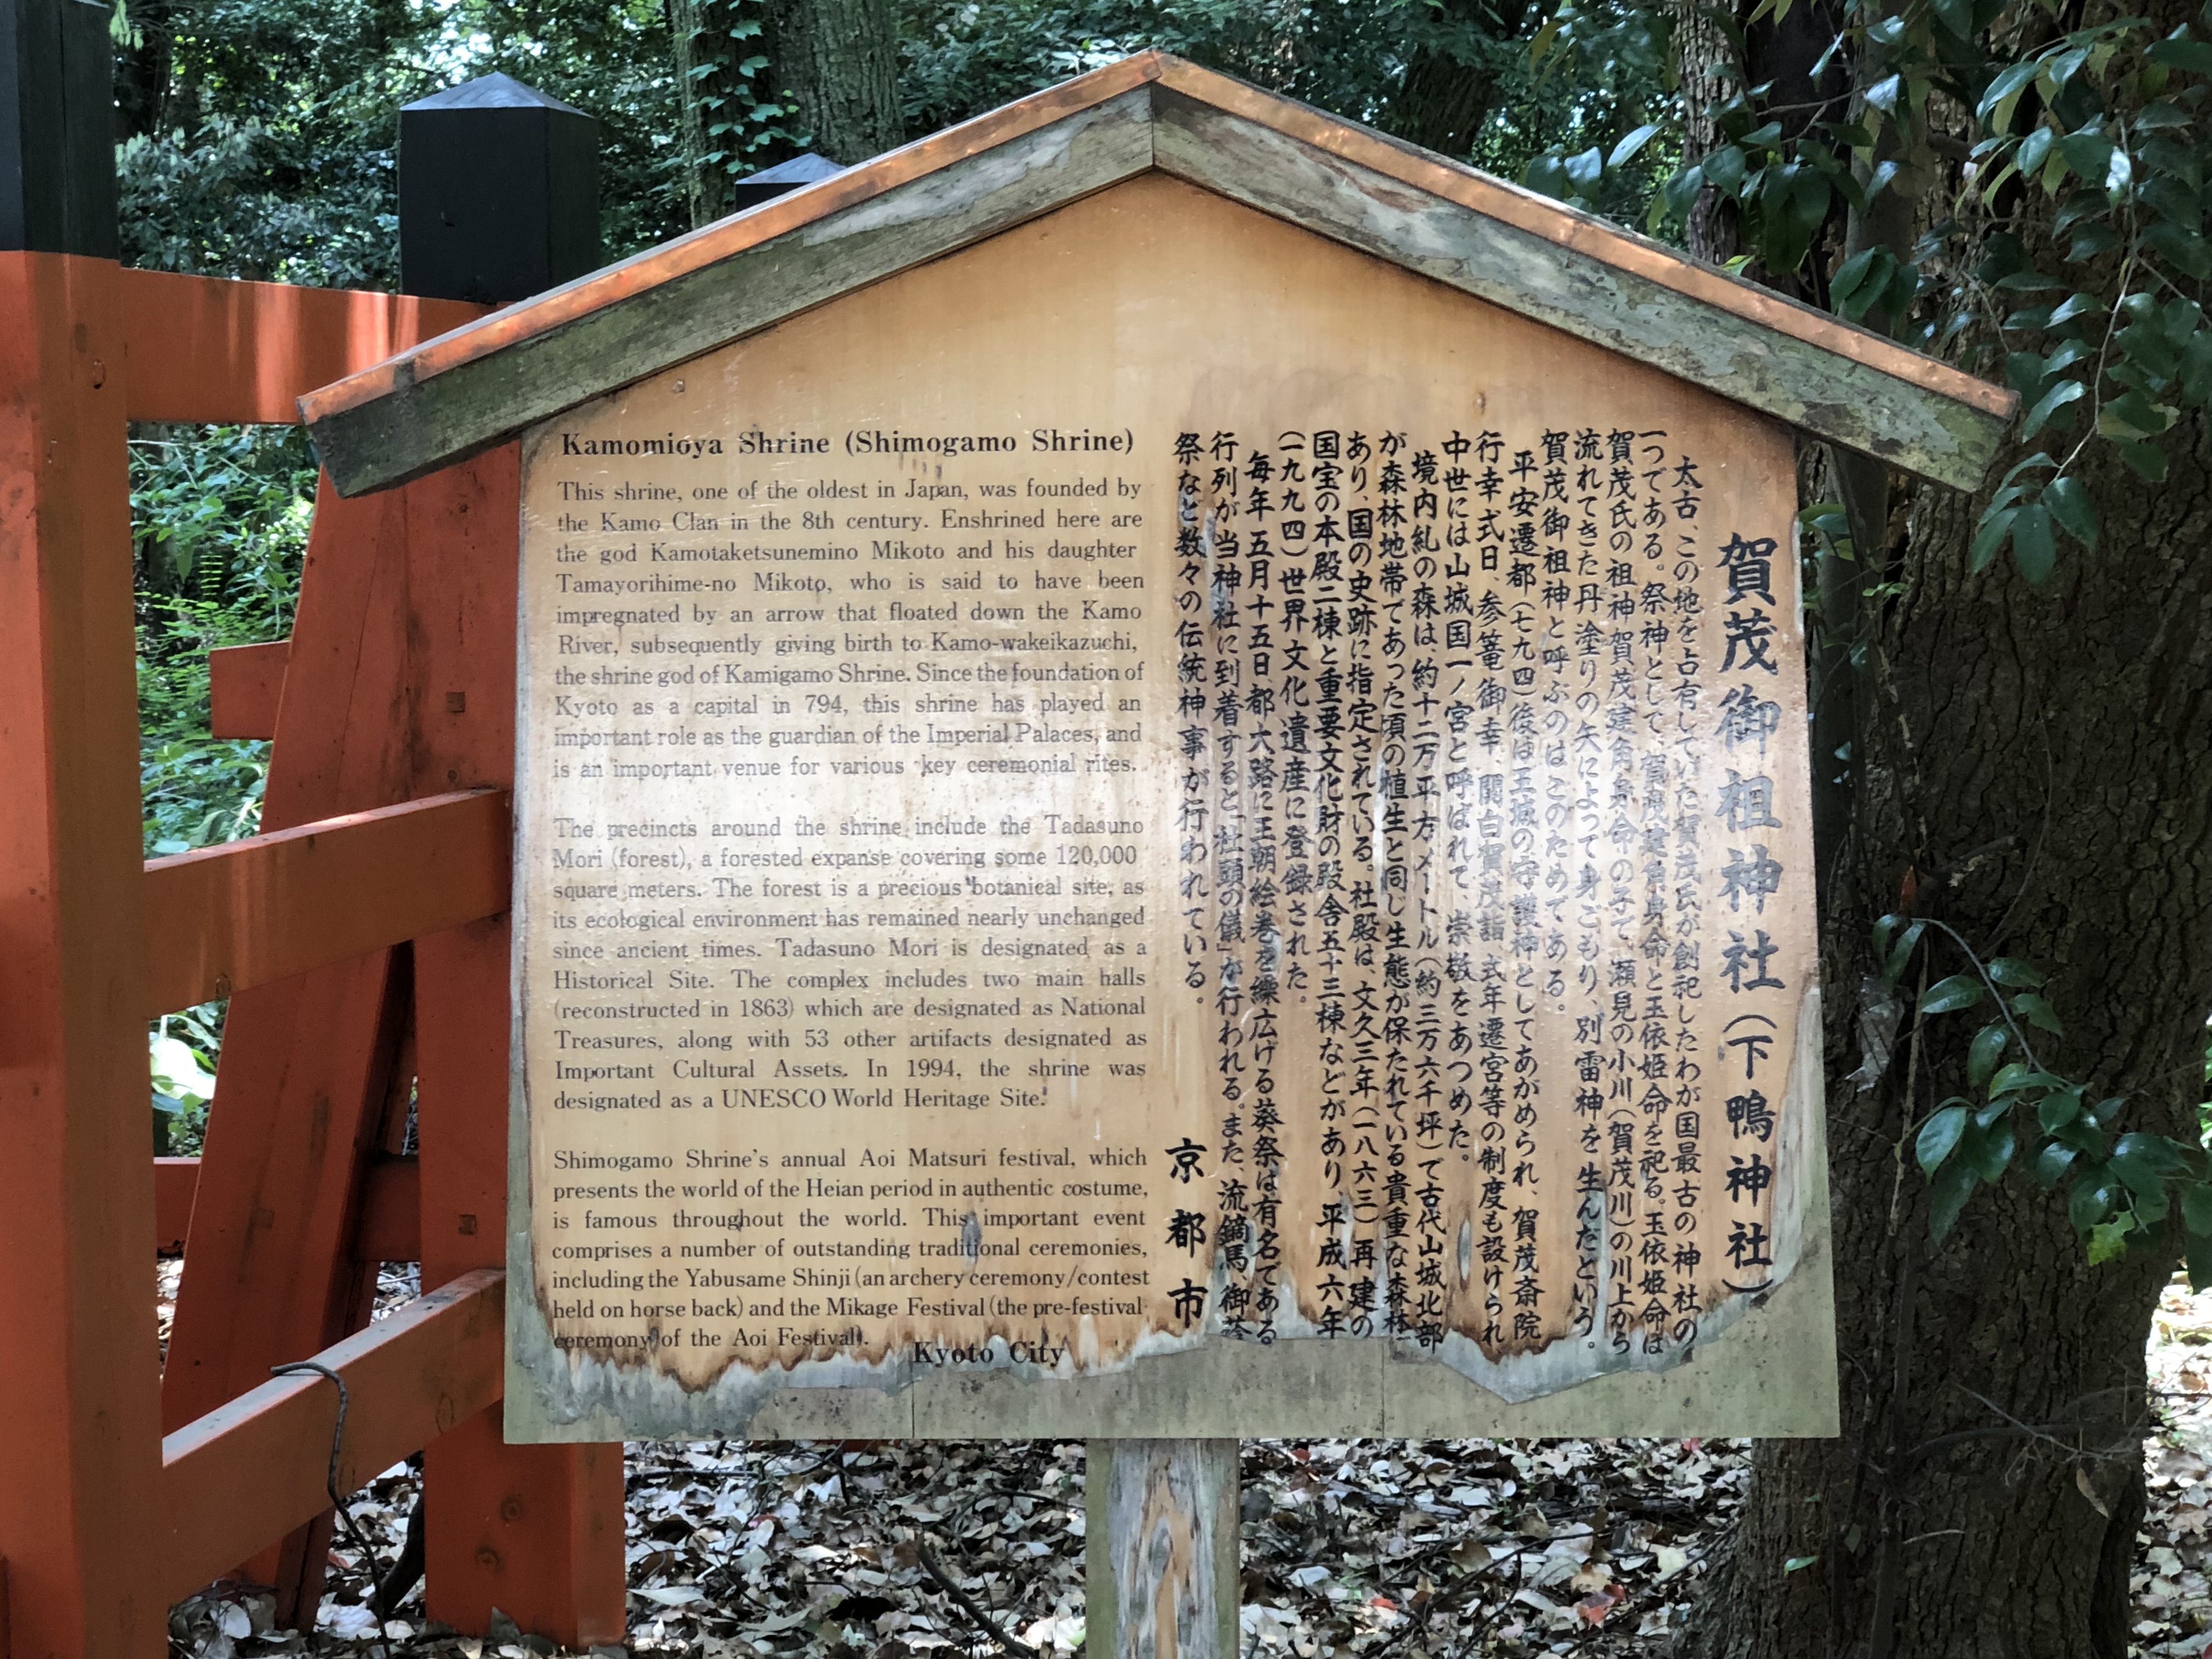 Kamomioya Shrine (Shimogamo Shrine)
This shrine, one of the oldest in Japan, was founded by
the Kamo Clan in the 8th century. Enshrined here are
the god Kamotaketsunemino Mikoto and his daughter
Tamayorihime-no Mikoto, who is said to have been
impregnated by an arrow that floated down the Kamo
River, subsequently giving birth to Kamo-wakeikazuchi,
the shrine god of Kamigamo Shrine. Since the foundation of
Kyoto as a capital in 794, this shrine has played an
important role as the guardian of the Imperial Palaces, and
is an important venue for various key ceremonial rites.
The precincts around the shrine include the Tadasuno
Mori (forest), a forested expanse covering some 120,000
square meters. The forest is a precious botanical site, as
its ecological environment has remained nearly unchanged
since ancient times. Tadasuno Mori is designated as a
Historical Site. The complex includes two main halls
(reconstructed in 1863) which are designated as National
Treasures, along with 53 other artifacts designated as
Important Cultural Assets. In 1994, the shrine was
designated as a UNESCO World Heritage Site.
Shimogamo Shrine's annual Aoi Matsuri festival, which
presents the world of the Heian period in authentic costume,
is famous throughout the world. This important event
comprises a number of outstanding traditional ceremonies,
including the Yabusame Shinji (an archery ceremony/contest
held on horse back) and the Mikage Festival (the pre-festival
ceremony of the Aoi Festival).
Kyoto City
賀茂御祖神社(下鴨神社)
太古、この地を占有していた賀茂氏が創祀したわが国最古の神社の
一つである。祭神として、賀茂建角身命と玉依姫命を祀る。玉依姫命は
賀茂氏の祖神賀茂建角身命の子で、瀬見の小川(賀茂川)の川上から
流れてきた丹塗りの矢によって身ごもり、別雷神を生んだという。
賀茂御祖神と呼ぶのはこのためである。
平安遷都(七九四)後は王城の守護神としてあがめられ、賀茂斎院
行幸式日、参篭御幸、関白賀茂詣、式年遷宮等の制度も設けられ
中世には山城国一ノ宮と呼ばれて、崇敬をあつめた。
境内糺の森は、約十二万平方メートル(約三万六千坪)で古代山城北部
が森林地帯であった頃の植生と同じ生態が保たれている貴重な森林で
あり、国の史跡に指定されている。社殿は、文久三年(一八六三)再建の
国宝の本殿二棟と重要文化財の殿舎五十三棟などがあり、平成六年
(一九九四)世界文化遺産に登録された。
毎年五月十五日都大路に王朝絵巻を繰広げる葵祭は有名である
行列が当神社に到着すると「社頭の儀」が行われる。また、流鏑馬、御蔭
祭など数々の伝統神事が行われている。
京都市